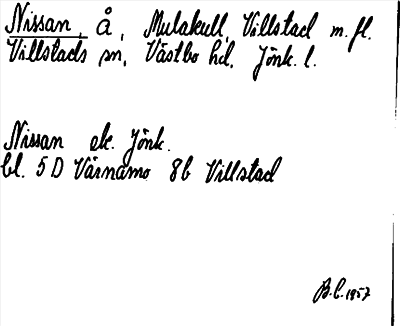 Nissan, å, Mulakull, Villstad m.fl.
Villstads sn, Västbo hd. Jönk. l.
Nissan ek. Jönk.
bl. 5 D Värnamo 8b Villstad
B.C. 1957